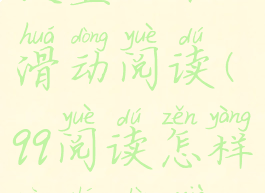 huá dòng yuè dú
滑动阅读(
yuè dú zěn yàng
99阅读怎样